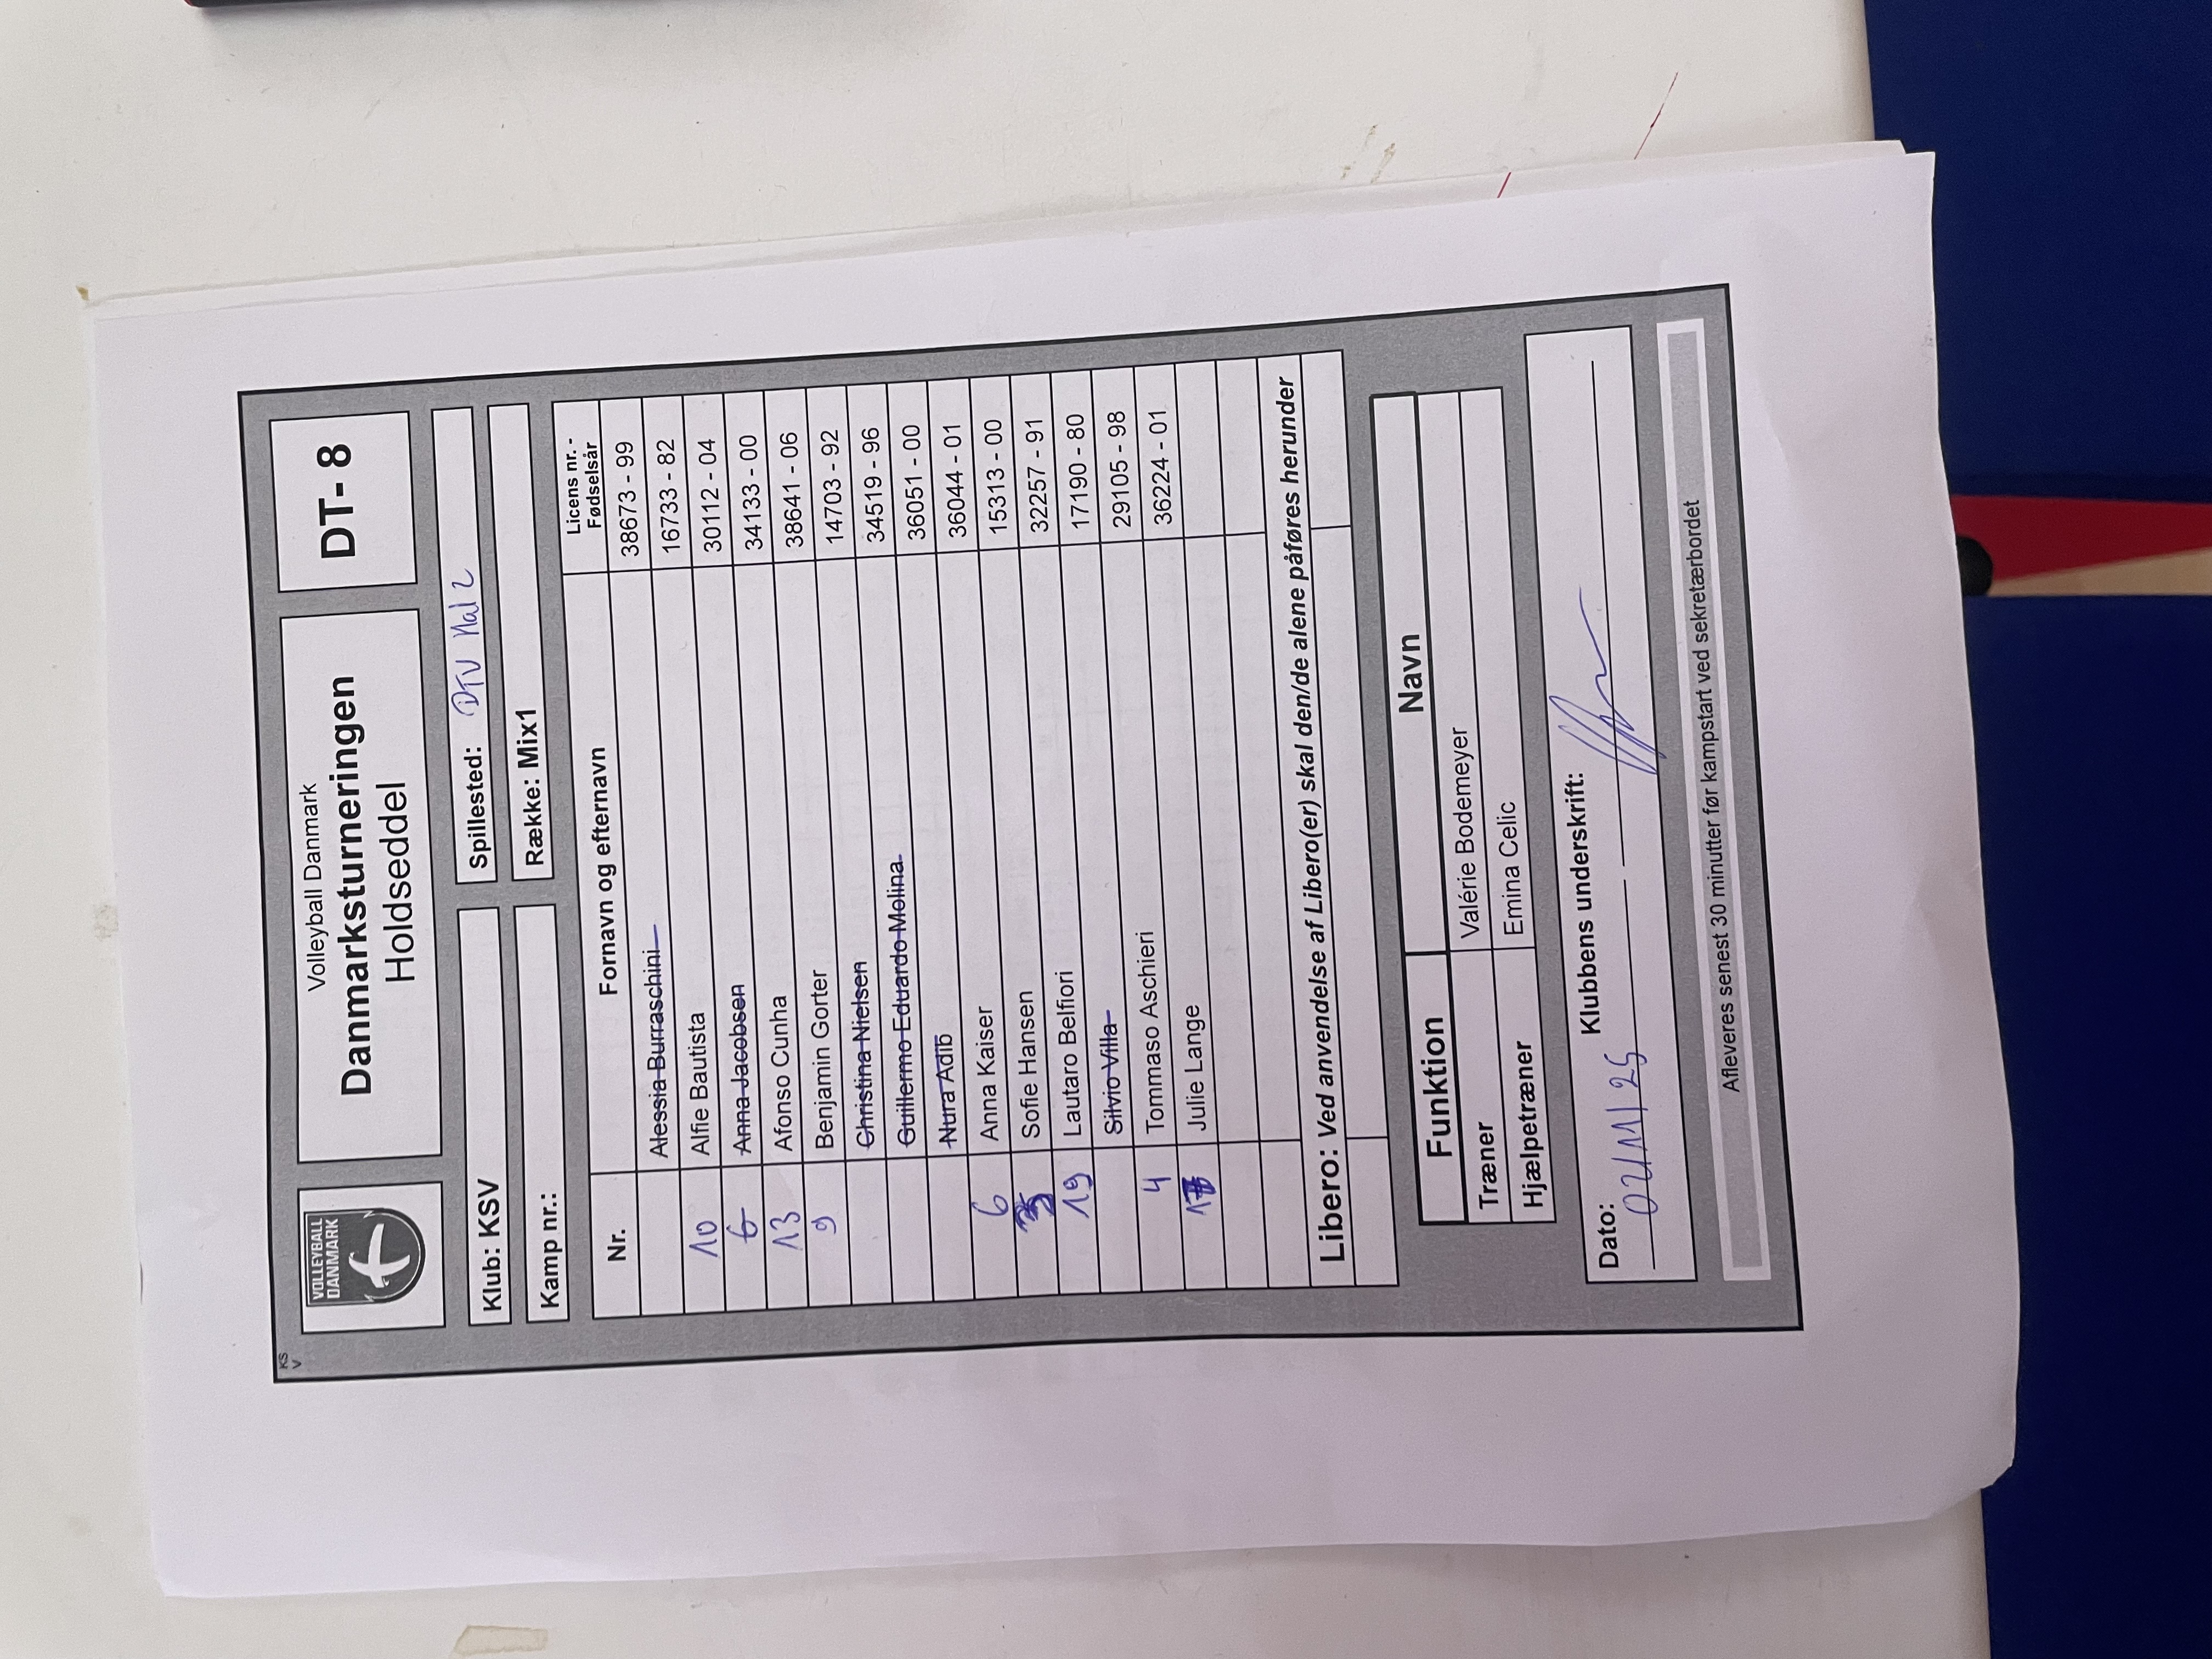 KS
V
VOLLEYBALL
DANMARK
Volleyball Danmark
Danmarksturneringen
Holdseddel
DT- 8
Klub: KSV
Spillested: DTU Hal 2
Kamp nr.:
Række: Mix1
Nr. Fornavn og efternavn Licens nr. - Fødselsår
Alessia Burraschini 38673 - 99
10 Alfie Bautista 16733 - 82
6 Anna Jacobsen 30112 - 04
13 Afonso Cunha 34133 - 00
9 Benjamin Gorter 38641 - 06
Christina Nielsen 14703 - 92
Guillermo Eduardo Molina 34519 - 96
Nura Adib 36051 - 00
6 Anna Kaiser 36044 - 01
Sofie Hansen 15313 - 00
19 Lautaro Belfiori 32257 - 91
Silvio Villa 17190 - 80
4 Tommaso Aschieri 29105 - 98
Julie Lange 36224 - 01
Libero: Ved anvendelse af Libero(er) skal den/de alene påføres herunder
Funktion Navn
Træner Valérie Bodemeyer
Hjælpetræner Emina Celic
Dato: Klubbens underskrift:
02/11/25
Afleveres senest 30 minutter før kampstart ved sekretærbordet